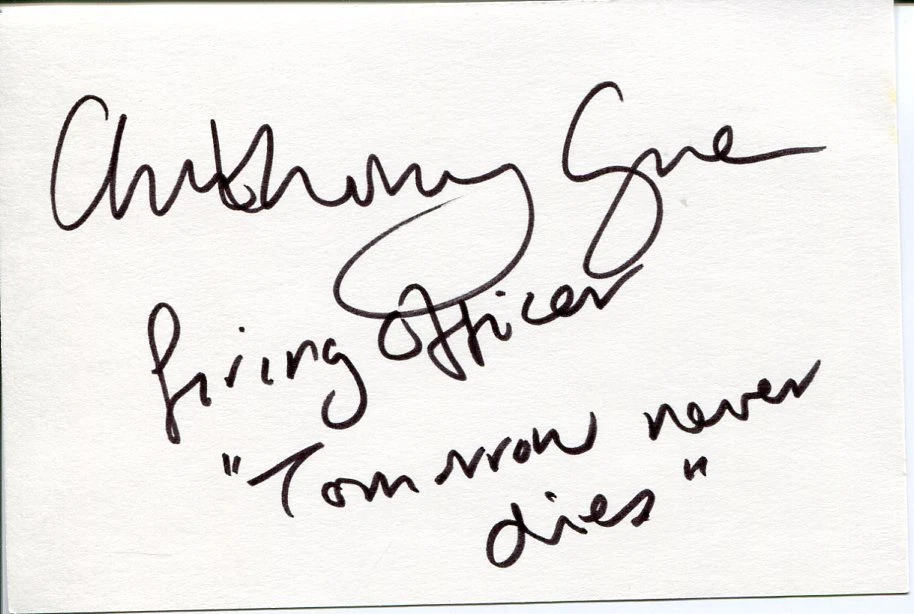 Anthony Green
firing Officer
"Tomorrow never
dies"